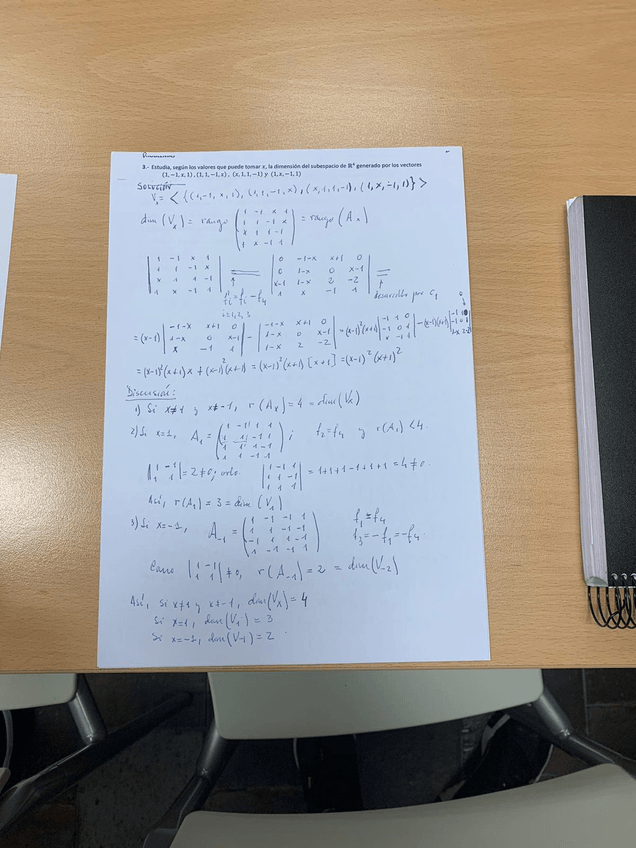 3.- Estudia, según los valores que puede tomar x, la dimensión del subespacio de ℝ⁴ generado por los vectores
(1,−1,x,1), (1,1,−1,x), (x,1,1,−1) y (1,x,−1,1)
Solución
Vₓ = < {(1,-1,x,1), (1,1,-1,x), (x,1,1,-1), (1,x,-1,1)} >
dim(Vₓ) = rango ( 1 -1 x 1
1 1 -1 x
x 1 1 -1
1 x -1 1 ) = rango(Aₓ)
| 1 -1 x 1
1 1 -1 x
x 1 1 -1
1 x -1 1 | = | 0 -1-x x+1 0
0 1-x 0 x-1
x-1 1-x 2 -2
1 x -1 1 | =
fi = fi - f4
i=1,2,3
desarrollo por C1
= (x-1) | -1-x x+1 0
1-x 0 x-1
x -1 1 | - | -1-x x+1 0
1-x 0 x-1
1-x 2 -2 | = (x-1)²(x+1) | -1 1 0
-1 0 1
x -1 1 | - (x-1)(x+1)
= (x-1)²(x+1)x + (x-1)²(x+1) = (x-1)²(x+1)[x+1] = (x-1)²(x+1)²
Discusión:
1) Si x≠1 y x≠-1, r(Aₓ) = 4 = dim(Vₓ)
2) Si x=1, A₁ = ( 1 -1 1 1
1 1 -1 1
1 1 1 -1
1 1 -1 1 ) ; f2=f4 y r(A₁)<4.
| 1 -1
1 1 | = 2≠0, | 1 -1 1
1 1 -1
1 1 1 | = 1+1+1-1+1+1 = 4≠0.
Así, r(A₁) = 3 = dim(V₁)
3) Si x=-1, A₋₁ = ( 1 -1 -1 1
1 1 -1 -1
-1 1 1 -1
1 -1 -1 1 ) f1 = f4
f3 = -f1 = -f4
Como | 1 -1
1 1 | ≠0, r(A₋₁) = 2 = dim(V₋₂)
Así, si x≠1 y x≠-1, dim(Vₓ) = 4
Si x=1, dim(V₁) = 3
Si x=-1, dim(V₋₁) = 2